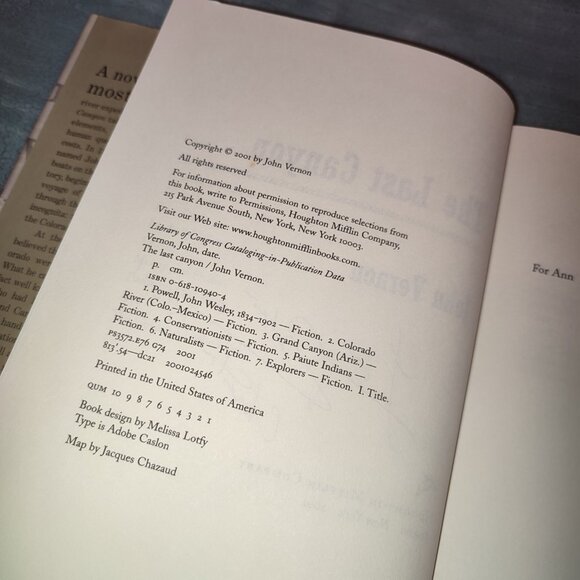 A nov
most
river expe
Canyon ta
elements,
human qu
costs. In
named Joh
boats on th
tory, begin
voyage of
through th
incognita:
the Colora
At th
believed th
orado we
What he
fact well k
ho had
nd Car
hand
ation
Copyright © 2001 by John Vernon
All rights reserved
For information about permission to reproduce selections from
this book, write to Permissions, Houghton Mifflin Company,
215 Park Avenue South, New York, New York 10003.
Visit our Web site: www.houghtonmifflinbooks.com.
Library of Congress Cataloging-in-Publication Data
Vernon, John, date.
The last canyon / John Vernon.
p. cm.
ISBN 0-618-10940-4
1. Powell, John Wesley, 1834–1902 — Fiction. 2. Colorado
River (Colo.–Mexico) — Fiction. 3. Grand Canyon (Ariz.) —
Fiction. 4. Conservationists — Fiction. 5. Paiute Indians —
Fiction. 6. Naturalists — Fiction. 7. Explorers — Fiction. I. Title.
PS3572.E76 G74 2001
813'.54—dc21 2001024546
Printed in the United States of America
QUM 10 9 8 7 6 5 4 3 2 1
Book design by Melissa Lotfy
Type is Adobe Caslon
Map by Jacques Chazaud
For Ann